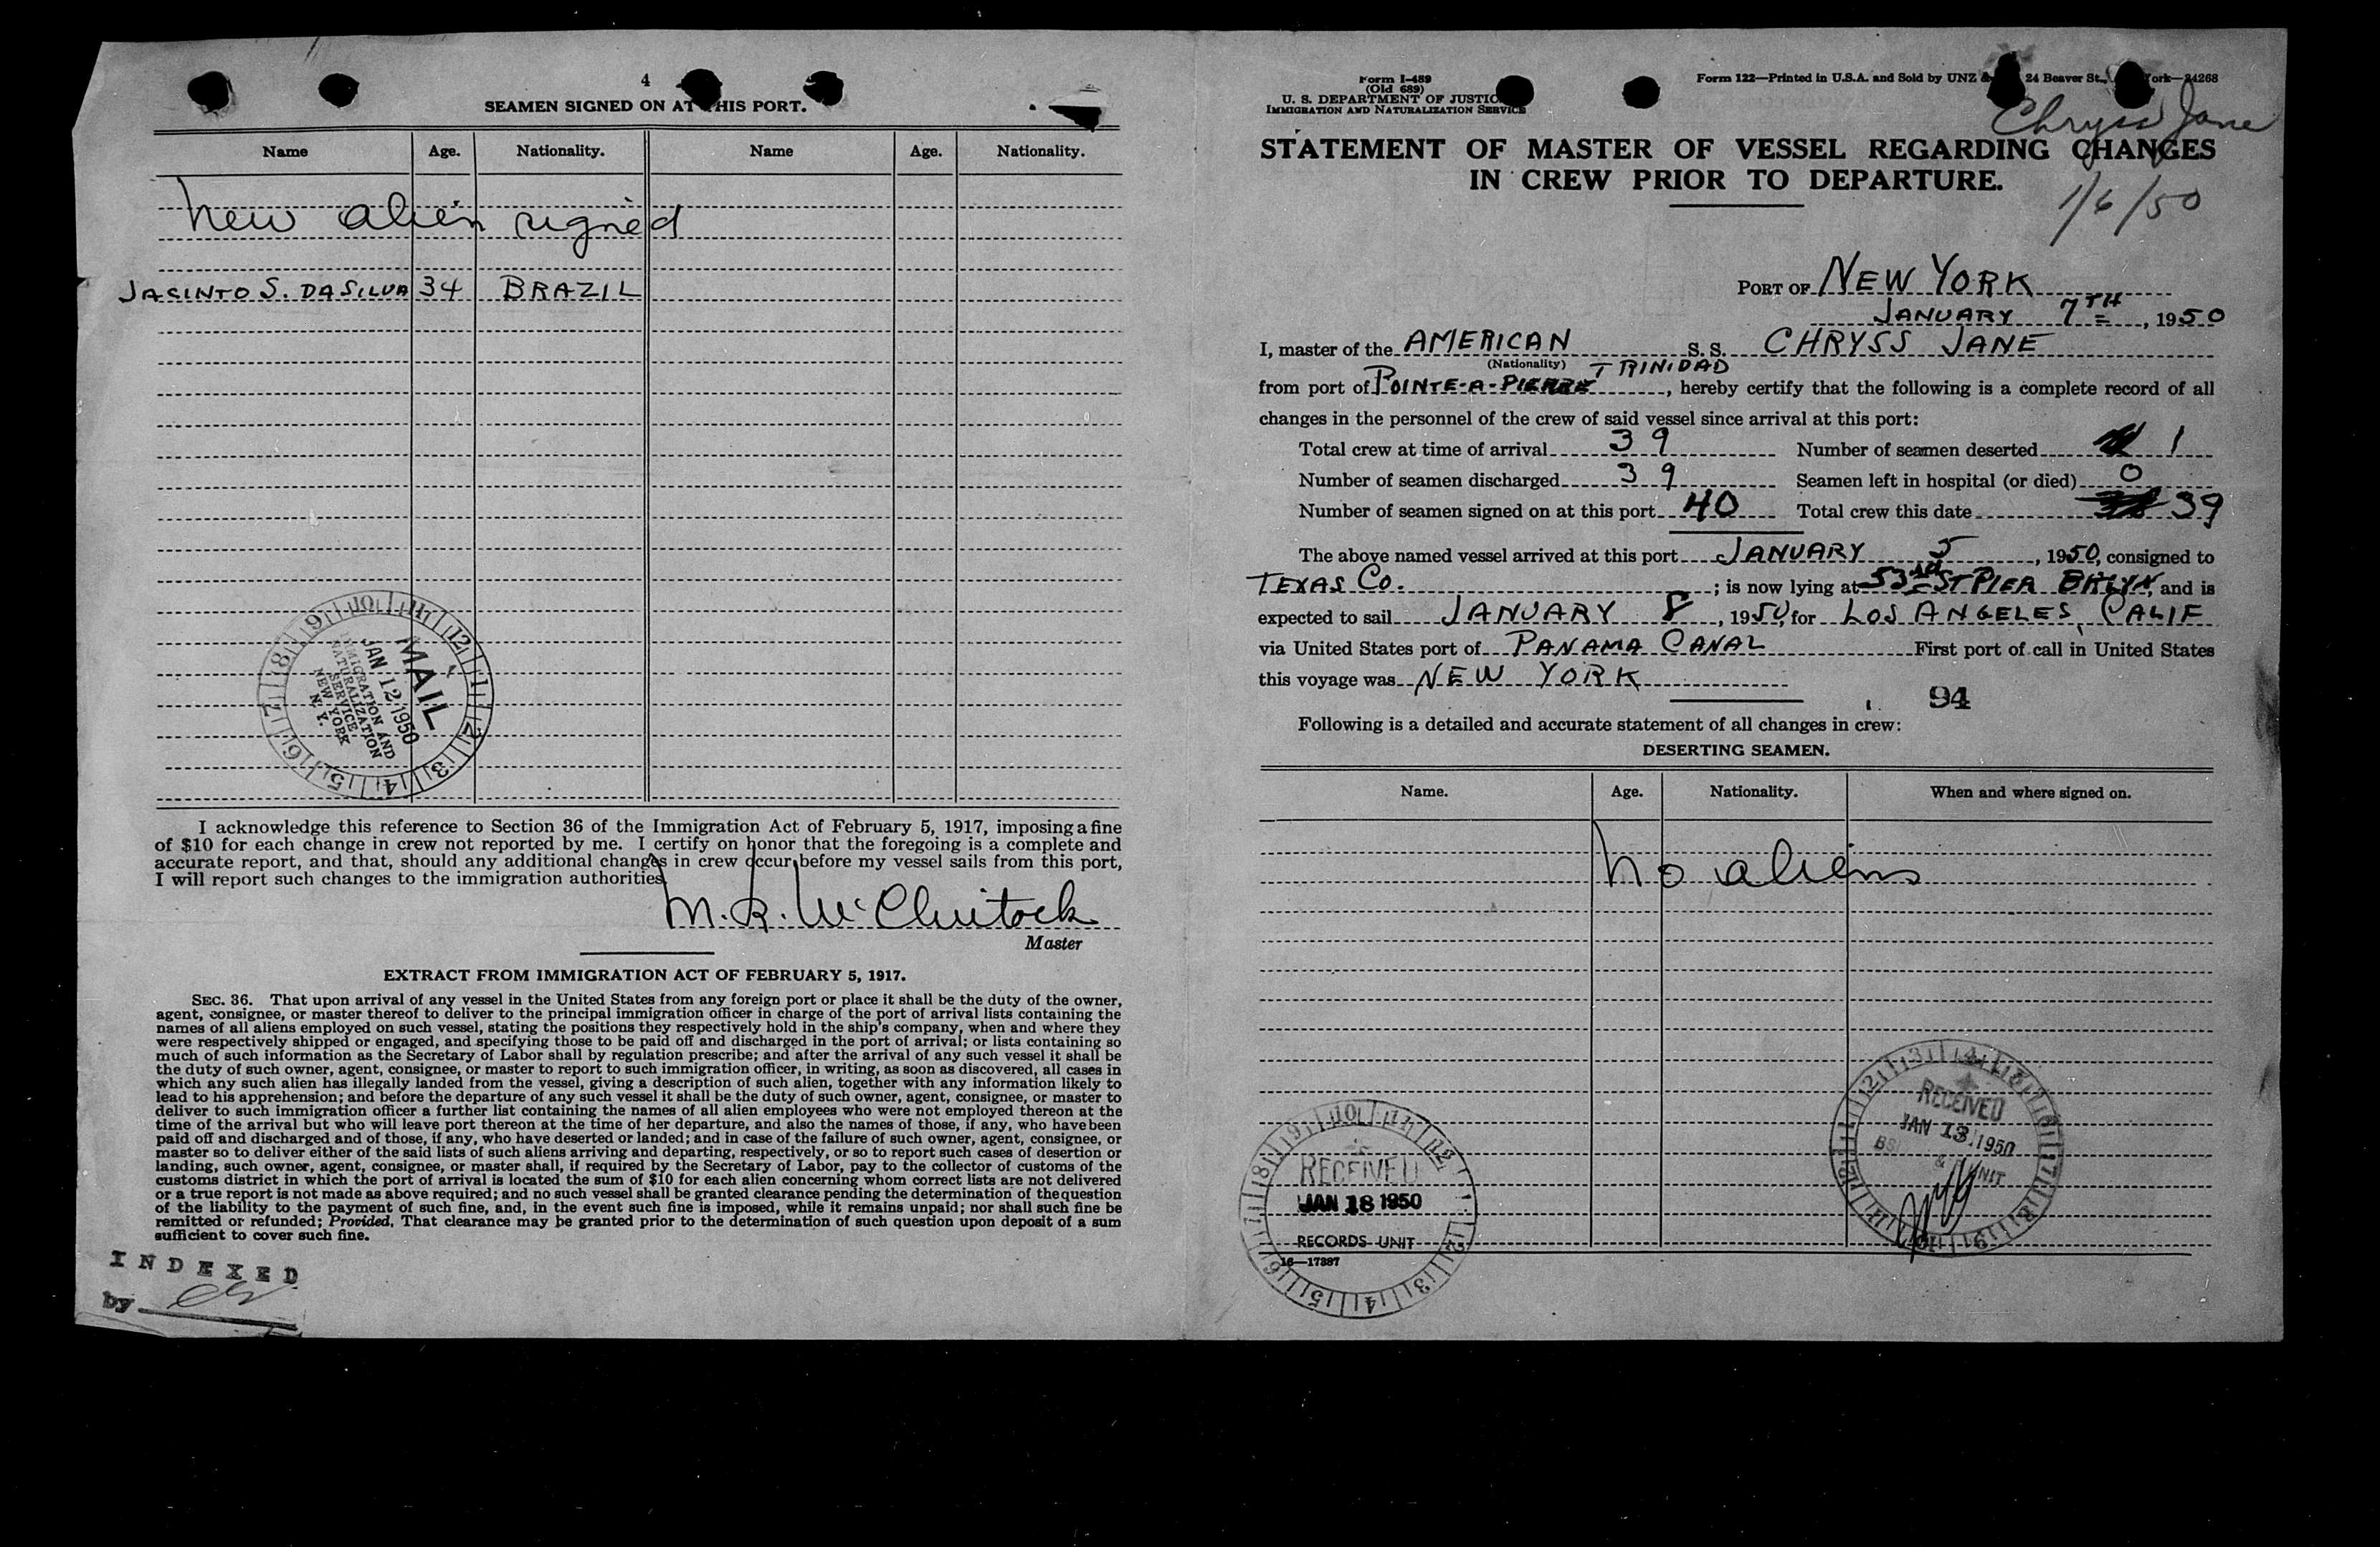 4
SEAMEN SIGNED ON AT THIS PORT.
Name Age. Nationality. Name Age. Nationality.
New alien signed
JASINTO S. DASILVA 34 BRAZIL
MAIL
JAN 12 1950
IMMIGRATION AND
NATURALIZATION
SERVICE
NEW YORK
N. Y.
I acknowledge this reference to Section 36 of the Immigration Act of February 5, 1917, imposing a fine
of $10 for each change in crew not reported by me. I certify on honor that the foregoing is a complete and
accurate report, and that, should any additional changes in crew occur before my vessel sails from this port,
I will report such changes to the immigration authorities.
M. R. McClintock
Master
EXTRACT FROM IMMIGRATION ACT OF FEBRUARY 5, 1917.
SEC. 36. That upon arrival of any vessel in the United States from any foreign port or place it shall be the duty of the owner,
agent, consignee, or master thereof to deliver to the principal immigration officer in charge of the port of arrival lists containing the
names of all aliens employed on such vessel, stating the positions they respectively hold in the ship's company, when and where they
were respectively shipped or engaged, and specifying those to be paid off and discharged in the port of arrival; or lists containing so
much of such information as the Secretary of Labor shall by regulation prescribe; and after the arrival of any such vessel it shall be
the duty of such owner, agent, consignee, or master to report to such immigration officer, in writing, as soon as discovered, all cases in
which any such alien has illegally landed from the vessel, giving a description of such alien, together with any information likely to
lead to his apprehension; and before the departure of any such vessel it shall be the duty of such owner, agent, consignee, or master to
deliver to such immigration officer a further list containing the names of all alien employees who were not employed thereon at the
time of the arrival but who will leave port thereon at the time of her departure, and also the names of those, if any, who have been
paid off and discharged and of those, if any, who have deserted or landed; and in case of the failure of such owner, agent, consignee, or
master so to deliver either of the said lists of such aliens arriving and departing, respectively, or so to report such cases of desertion or
landing, such owner, agent, consignee, or master shall, if required by the Secretary of Labor, pay to the collector of customs of the
customs district in which the port of arrival is located the sum of $10 for each alien concerning whom correct lists are not delivered
or a true report is not made as above required; and no such vessel shall be granted clearance pending the determination of the question
of the liability to the payment of such fine, and, in the event such fine is imposed, while it remains unpaid; nor shall such fine be
remitted or refunded; Provided, That clearance may be granted prior to the determination of such question upon deposit of a sum
sufficient to cover such fine.
INDEXED
by
Form I-489
(Old 689)
U. S. DEPARTMENT OF JUSTICE
IMMIGRATION AND NATURALIZATION SERVICE
Form 122—Printed in U.S.A. and Sold by UNZ & 24 Beaver St., York—24268
Chryss Jane
STATEMENT OF MASTER OF VESSEL REGARDING CHANGES
IN CREW PRIOR TO DEPARTURE.
1/6/50
PORT OF NEW YORK
JANUARY 7TH, 1950
I, master of the AMERICAN S. S. CHRYSS JANE
(Nationality) TRINIDAD
from port of POINTE-A-PIERRE, hereby certify that the following is a complete record of all
changes in the personnel of the crew of said vessel since arrival at this port:
Total crew at time of arrival 39 Number of seamen deserted 1
Number of seamen discharged 39 Seamen left in hospital (or died) 0
Number of seamen signed on at this port 40 Total crew this date 39
The above named vessel arrived at this port JANUARY 5, 1950, consigned to
TEXAS CO. ; is now lying at 53rd ST PIER BKLYN, and is
expected to sail JANUARY 8, 1950, for LOS ANGELES, CALIF
via United States port of PANAMA CANAL First port of call in United States
this voyage was NEW YORK
94
Following is a detailed and accurate statement of all changes in crew:
DESERTING SEAMEN.
Name. Age. Nationality. When and where signed on.
No aliens
RECEIVED
JAN 13 1950
BSI & UNIT
RECEIVED
JAN 18 1950
RECORDS UNIT
16—17387